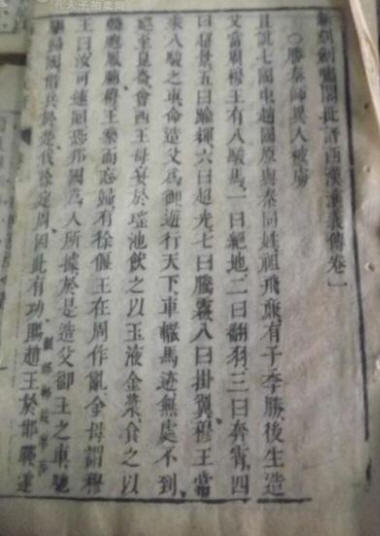 新刻劍嘯閣批評西漢演義傳卷一
○勝秦師異人被虜
且說七國中趙國原與秦同姓祖飛廉有子季勝後生造
父當周穆王有八駿馬一曰絕地二曰翻羽三曰奔霄四
曰超景五曰踰輝六曰超光七曰騰霧八曰掛翼穆王嘗
乘八駿之車命造父為御遊行天下車轍馬迹無處不到
遂至昆崙會西王母宴於瑤池飲之以玉液金漿食之以
龍肝鳳脯穆王樂而忘歸有徐偃王在周作亂金母謂穆
王曰汝可速回恐邦國為人所據於是造父御王之車馳
歸國借兵於楚伐徐定周因此有功賜趙王於邯鄲遂